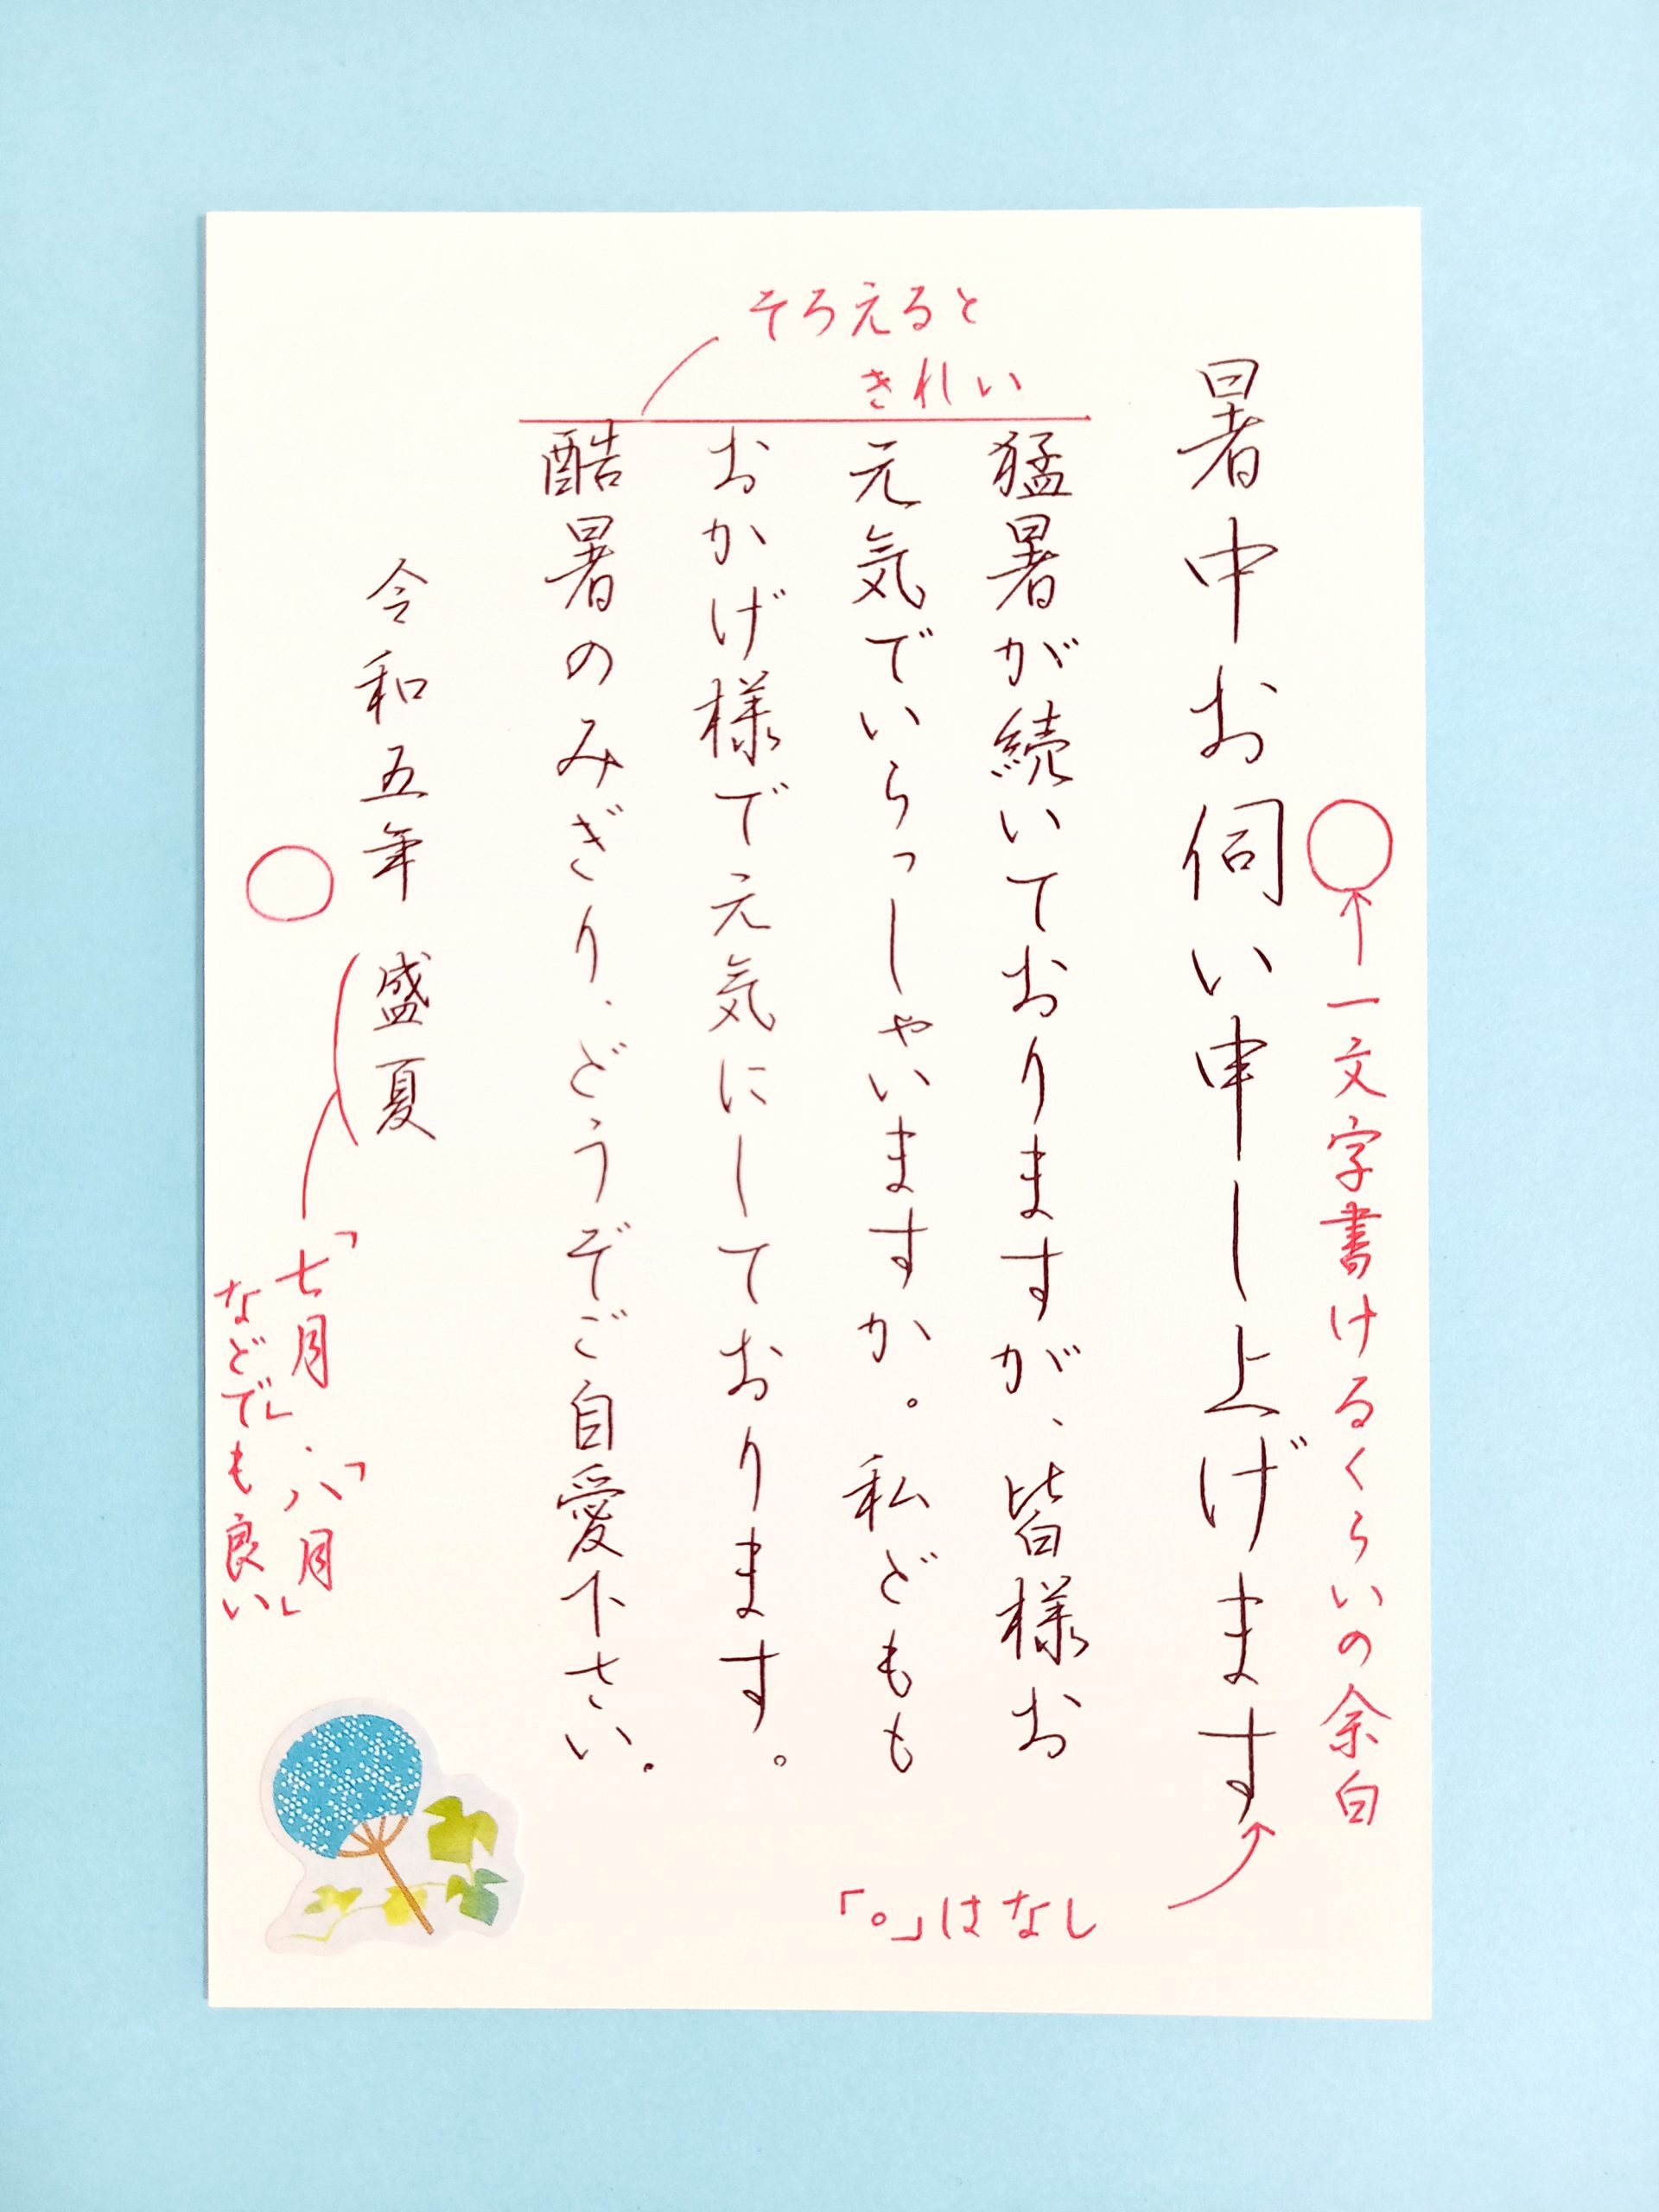 一文字書けるくらいの余白
暑中お伺い申し上げます
「。」はなし
そろえると
きれい
猛暑が続いておりますが、皆様お
元気でいらっしゃいますか。私どもも
おかげ様で元気にしております。
酷暑のみぎり、どうぞご自愛下さい。
令和五年 盛夏
「七月」・「八月」
などでも良い